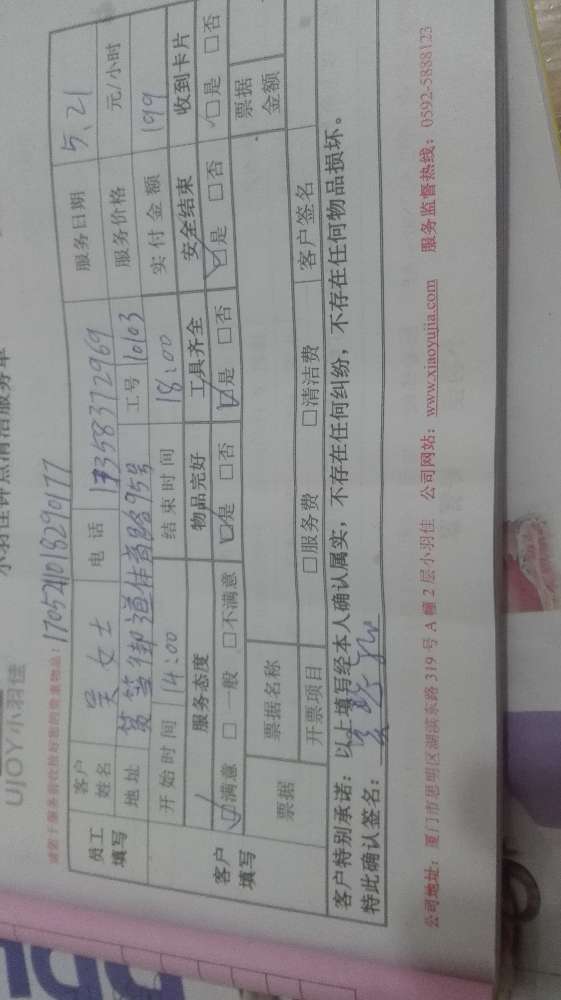 小羽佳钟点清洁服务单
UJOY小羽佳
1705211018290177
员工填写 客户姓名 吴女士 电话 17358372969 服务日期 5、21
地址 筼筜街道佳尚路95号 工号 10103 服务价格 元/小时
开始时间 14:00 结束时间 18:00 实付金额 199
客户填写 服务态度 物品完好 工具齐全 安全结束 收到卡片
☑满意 □一般 □不满意 ☑是 □否 ☑是 □否 ☑是 □否 ☑是 □否
票据 票据名称 票据金额
开票项目 □服务费 □清洁费 客户签名
客户特别承诺：以上填写经本人确认属实，不存在任何纠纷，不存在任何物品损坏。
特此确认签名：
公司地址：厦门市思明区湖滨东路319号A幢2层小羽佳 公司网站：www.xiaoyujia.com 服务监督热线：0592-5888123